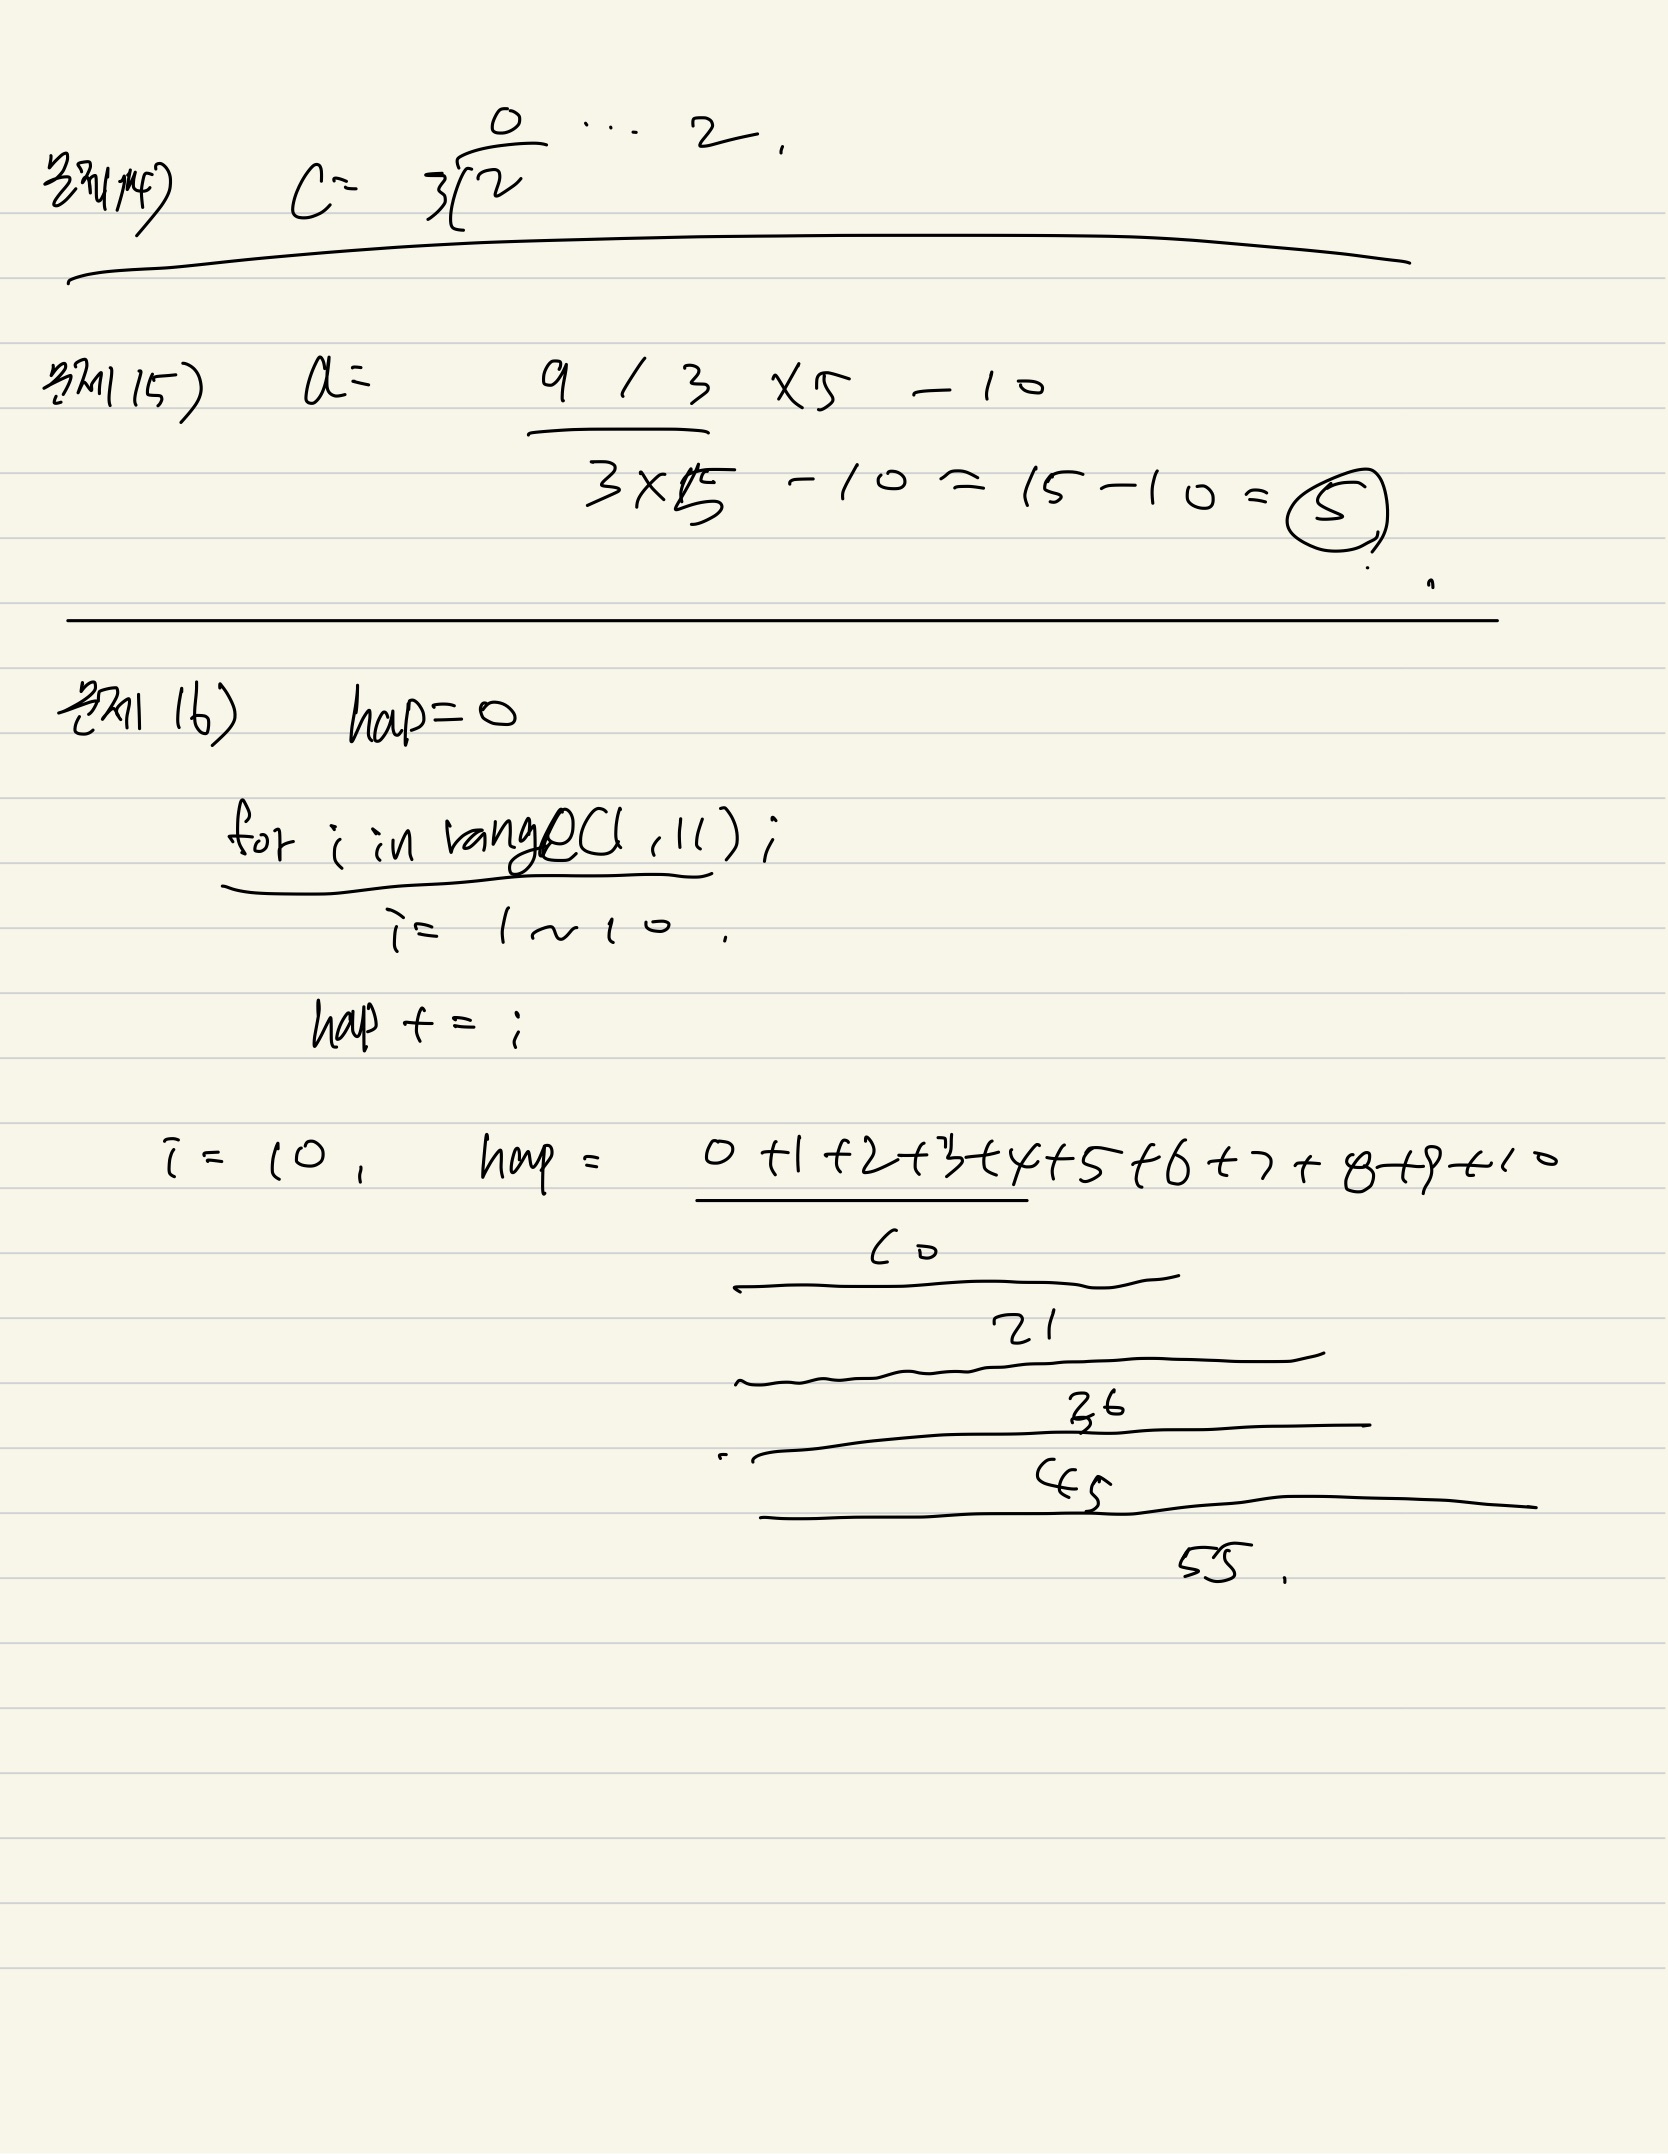 0 ... 2.
문제14) C= 3 2
문제15) a= 9 / 3 ×5 - 10
3×5 - 10 = 15 - 10 = 5
문제16) hap=0
for i in range(1,11);
i= 1~10.
hap += i
i = 10, hap = 0+1+2+3+4+5+6+7+8+9+10
10
21
36
45
55.